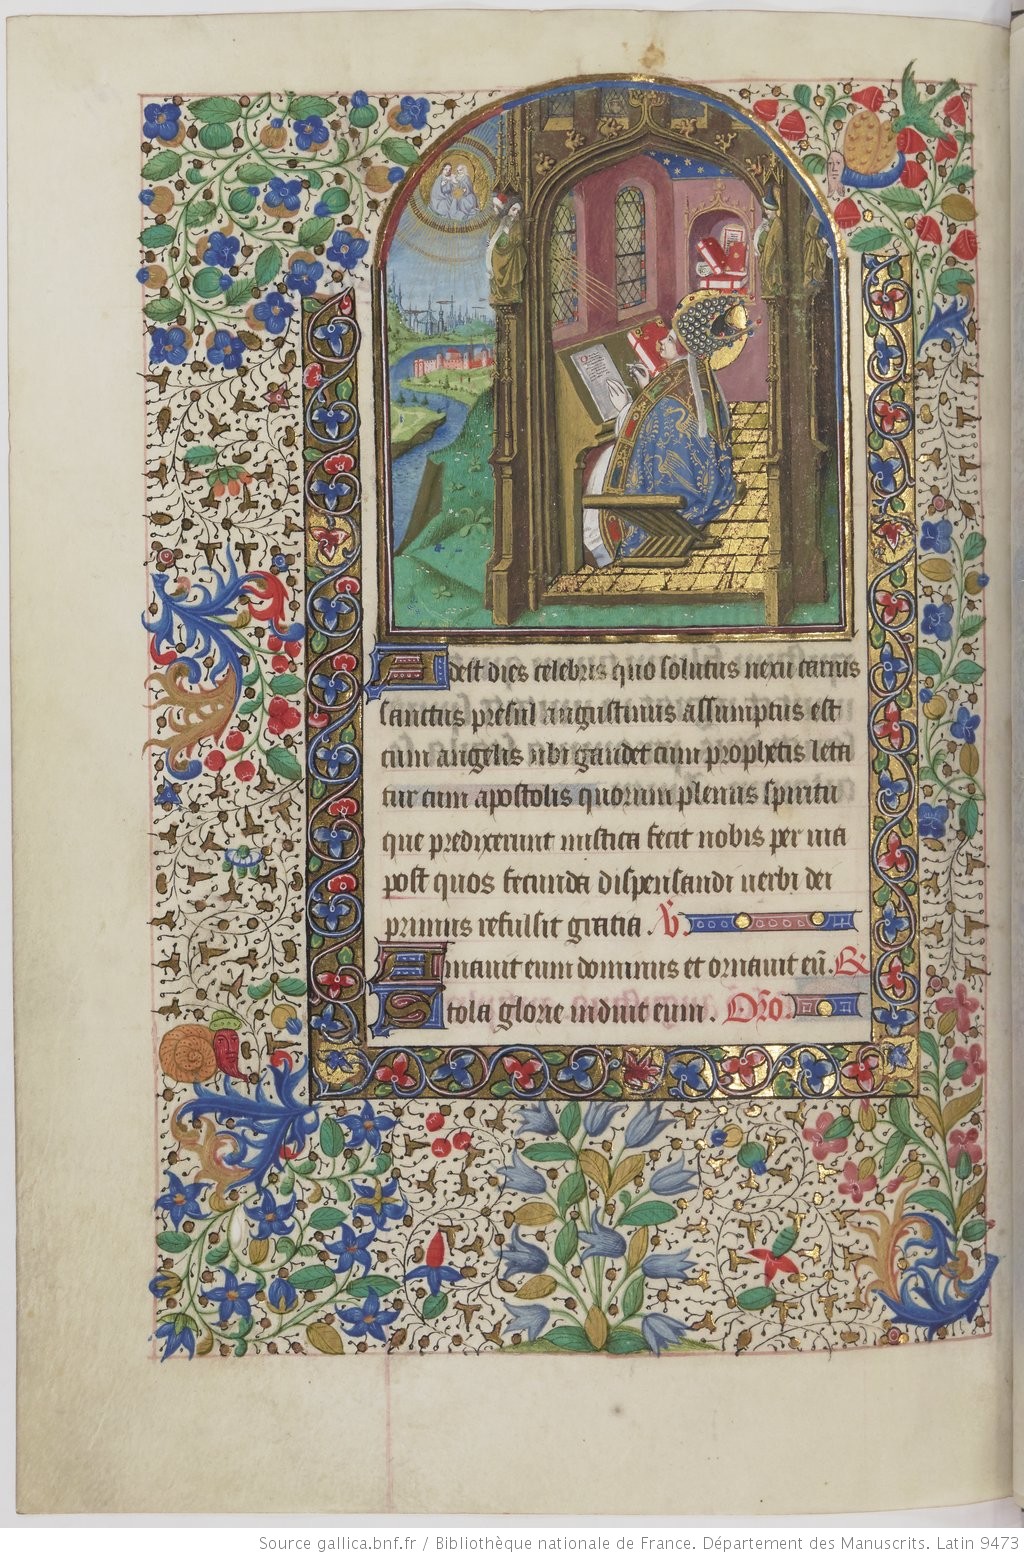 Adest dies celebris quo solutus nexu carnis
sanctus presul augustinus assumptus est
cum angelis ubi gaudet cum prophetis leta
tur cum apostolis quorum plenus spiritu
que predixerunt mistica fecit nobis per uia
post quos fecunda dispensandi uerbi dei
primus refulsit gratia. V.
Amauit eum dominus et ornauit eū. R.
Stola glorie induit eum. Oro.
Source gallica.bnf.fr / Bibliothèque nationale de France. Département des Manuscrits. Latin 9473